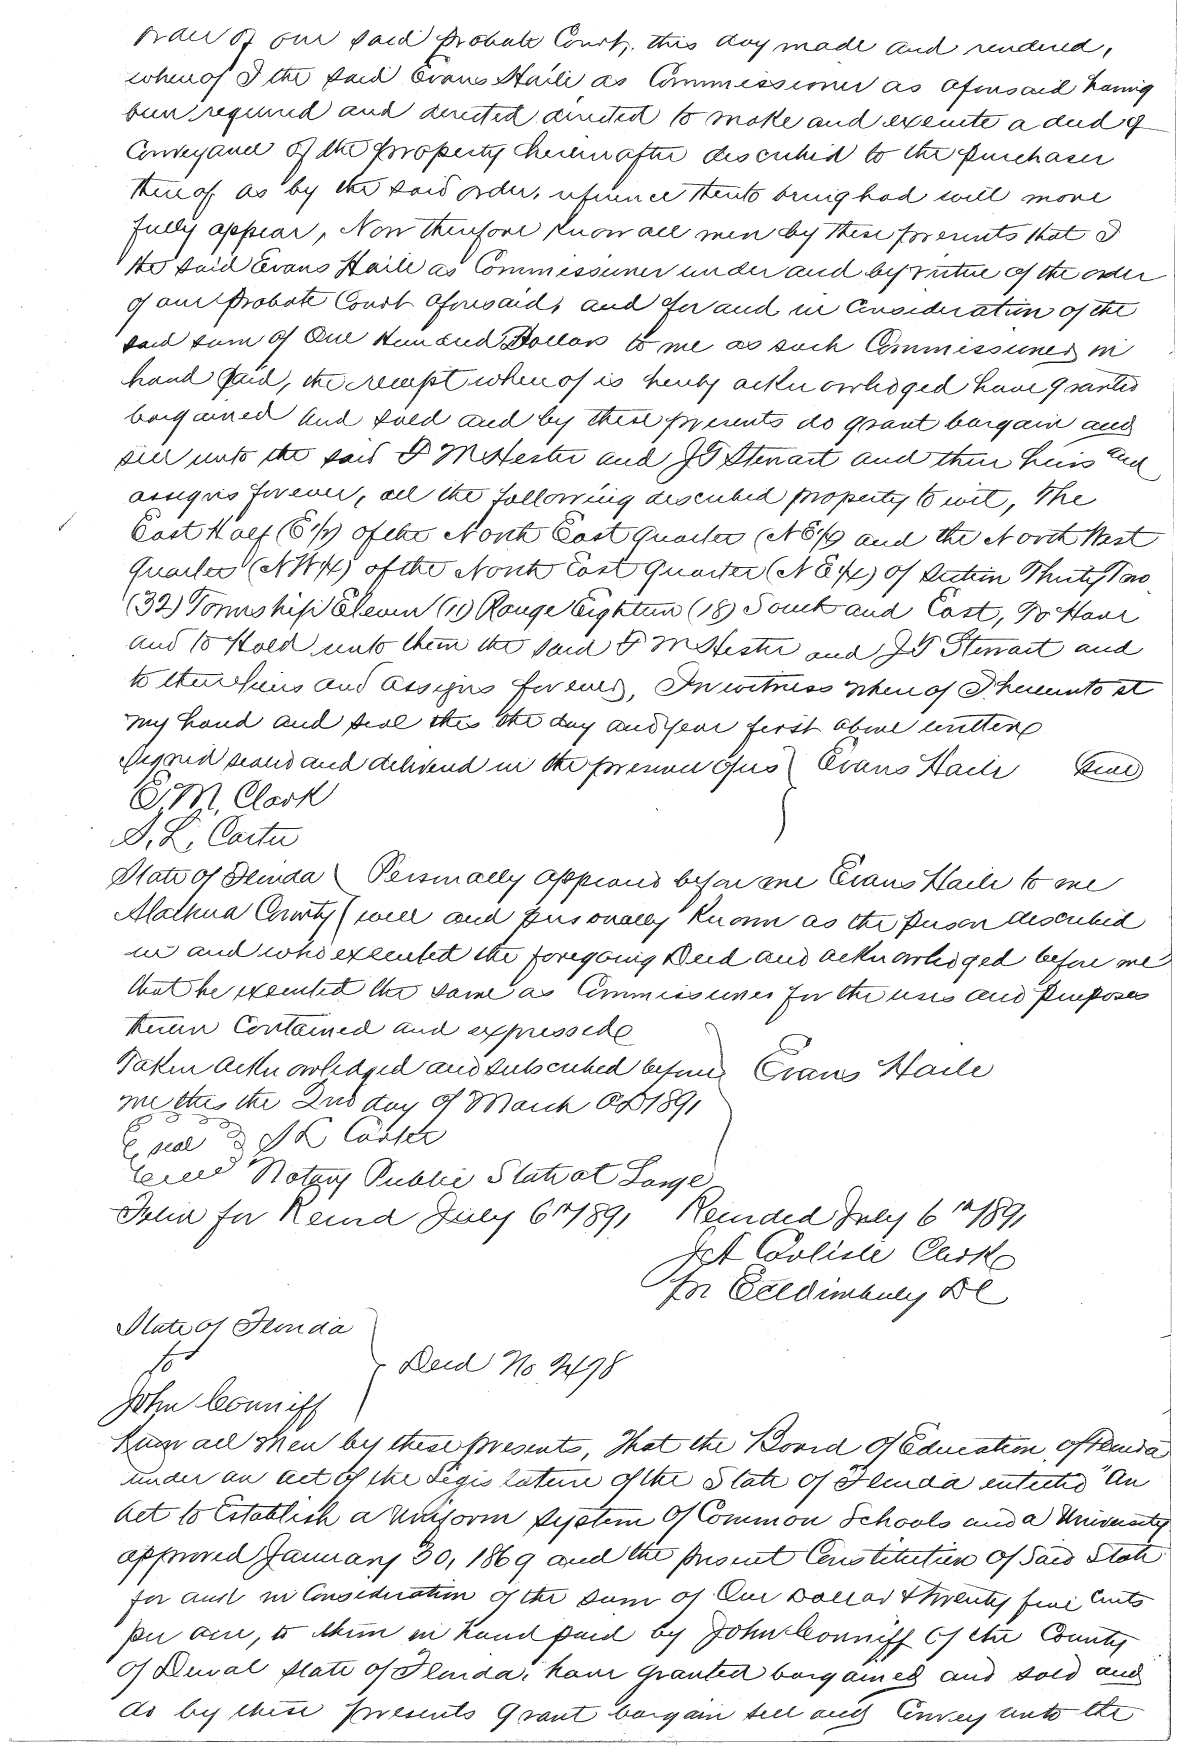 order of our said Probate Court, this day made and rendered,
whereof I the said Evans Haile as Commissioner as aforesaid having
been required and directed directed to make and execute a deed of
Conveyance of the property hereinafter described to the purchaser
thereof as by the said order, reference thereto being had will more
fully appear, Now therefore Know all men by these presents that I
the said Evans Haile as Commissioner under and by virtue of the order
of our Probate Court aforesaid, and for and in consideration of the
said sum of One Hundred Dollars to me as such Commissioner in
hand paid, the receipt whereof is hereby acknowledged have granted
bargained and sold and by these presents do grant bargain and
sell unto the said F M Hester and J T Stewart and their heirs and
assigns forever, all the following described property to wit, The
East Half (E 1/2) of the North East Quarter (N E 1/4) and the North West
Quarter (N W 1/4) of the North East Quarter (N E 1/4) of Section Thirty Two
(32) Township Eleven (11) Range Eighteen (18) South and East, To Have
and to Hold unto them the said F M Hester and J T Stewart and
to their heirs and assigns forever, In witness whereof I hereunto set
my hand and seal this the day and year first above written
Signed sealed and delivered in the presence of us } Evans Haile (Seal)
E. M. Clark
S. L. Carter
State of Florida } Personally appeared before me Evans Haile to me
Alachua County { well and personally Known as the person described
in and who executed the foregoing Deed and acknowledged before me
that he executed the same as Commissioner for the uses and purposes
therein contained and expressed
Taken acknowledged and subscribed before } Evans Haile
me this the 2nd day of March AD 1891
seal S L Carter
Notary Public State at Large
Filed for Record July 6th 1891 Recorded July 6th 1891
J A Carlisle Clerk
for DC
State of Florida
to } Deed No. 2498
John Conniff
Know all Men by these presents, That the Board of Education of Florida
under an act of the Legislature of the State of Florida entitled "An
act to Establish a Uniform System of Common Schools and a University
approved January 30, 1869 and the present Constitution of Said State
for and in consideration of the sum of One Dollar & twenty five cents
per acre, to them in hand paid by John Conniff of the County
of Duval State of Florida, have granted bargained and sold and
do by these presents grant bargain sell and Convey unto the